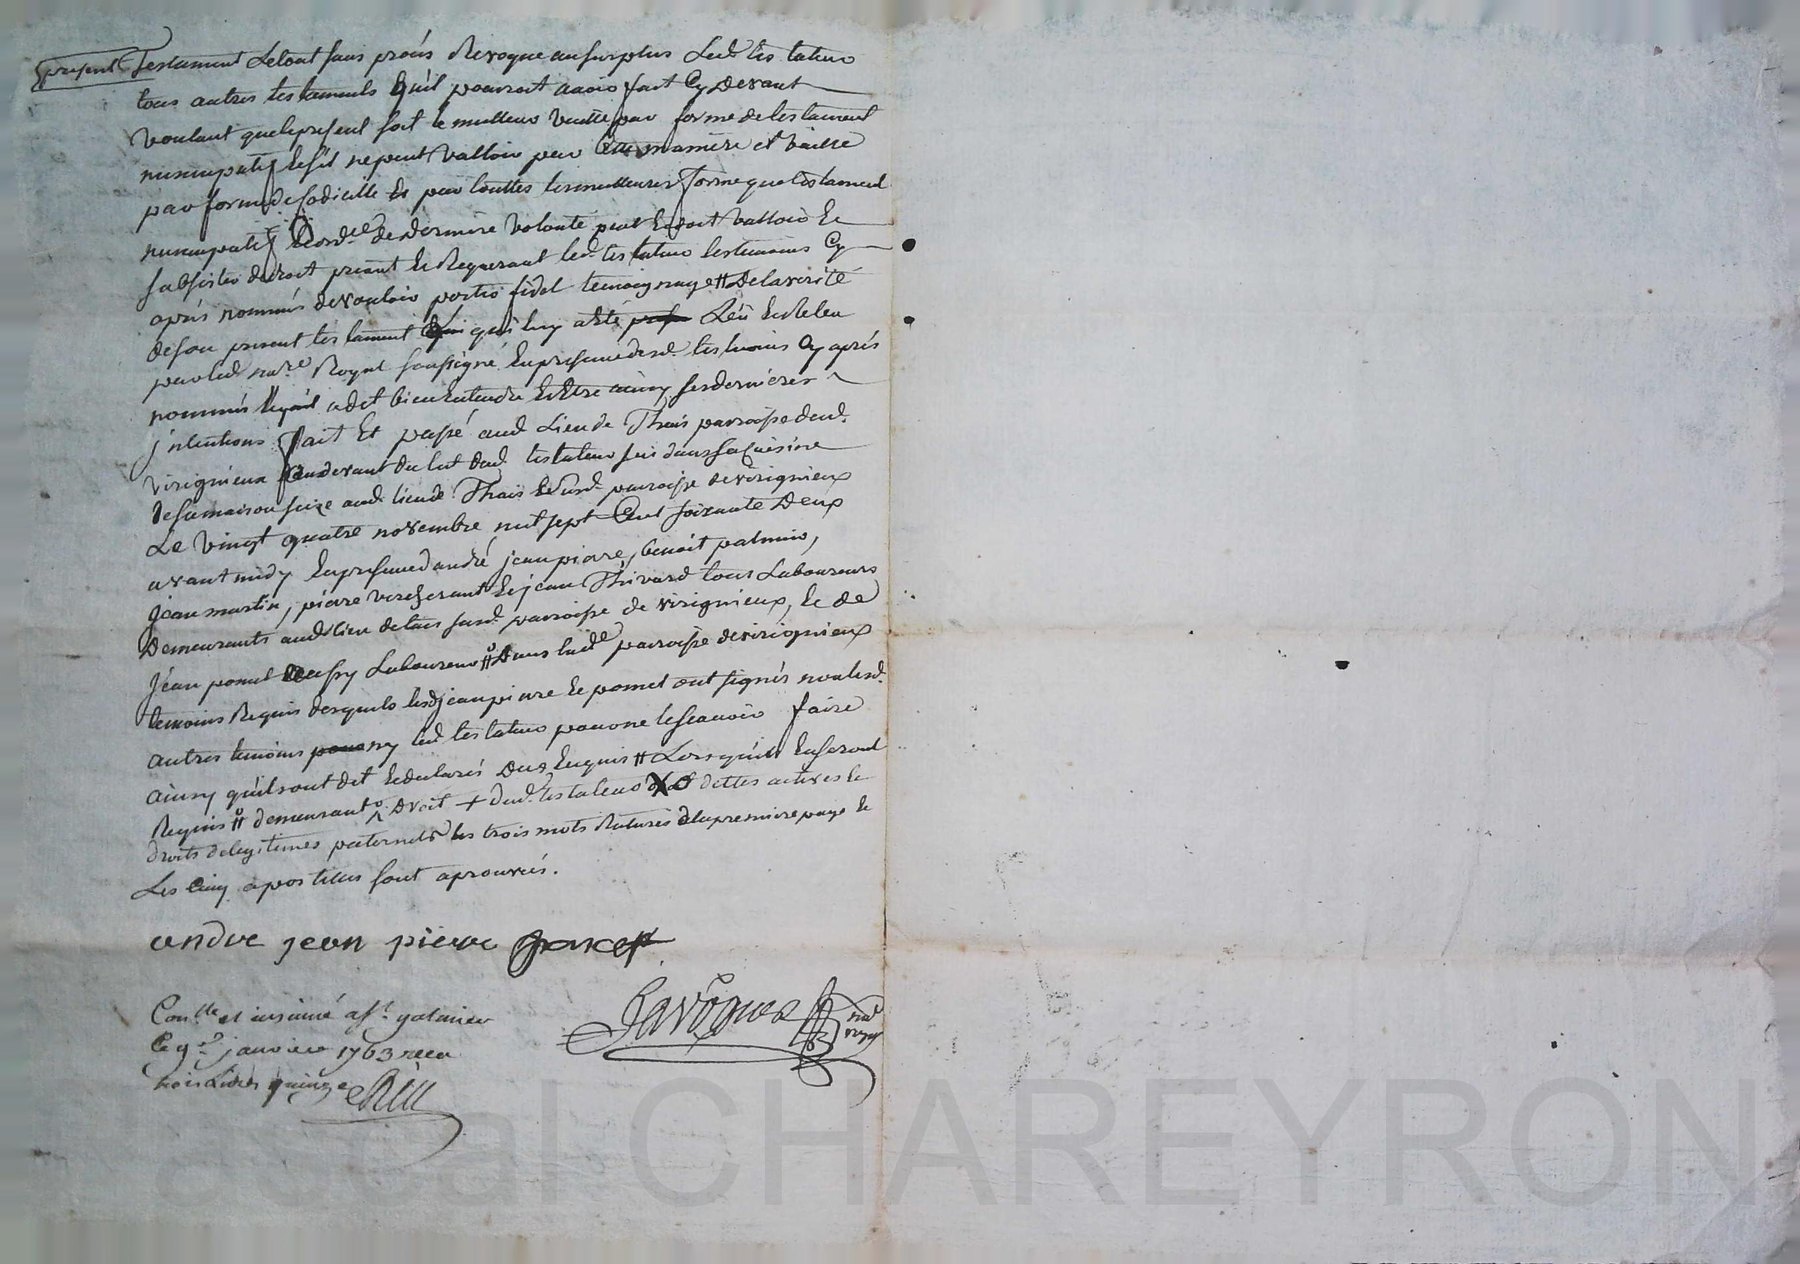 present Testament Letout sans procés Revoque ausurplus Led. testateur
tous autres testaments Quil pourroit avoir fait Cy Devant
voulant quelepresent soit le meilleur vaille par forme de testament
nuncupatif Et sil ne peut valloir par Cette maniere et vaille
par forme de Codicille Et par touttes les meilleures forme que testament
nuncupatif de derniere volonté peut Et doit valloir Et
subsister de droit priant Et Requerant led. testateur les temoins Cy
aprés nommés de vouloir porter fidel temoignage # De la verité
de son present testament qui luy a eté Leü Et Releu
par led. nore. Royal soussigné En presence desd. temoins Cy aprés
nommés Lequel a dit bien Entendre Et Etre ainsy ses dernieres
jntentions fait Et passé aud. Lieu de Thais parroisse dud.
virignieux audevant du lit dud. testateur sis dans la Cuisine
de sa maison size aud. lieu de Thais susd. parroisse de virignieux
Le vingt quatre novembre mil sept Cent soixante Deux
avant midy En presence d'andré jean pierre, benoit palmier,
jean martin, pierre vercherant Et jean Thivard tous Laboureurs
Demeurants aud. lieu de tais susd. parroisse de virignieux, Et de
jean poncet Laboureur # Dans lade. parroisse de virignieux
temoins Requis desquels lesd. jean pierre Et poncet ont signés non lesd.
autres temoins ny led. testateur pour ne le scavoir faire
ainsy qu'ils ont dit Et declarés De ce Enquis # Lors qu'ils En seront
Requis # demeurant ^ Droit + dud. testateur X dettes actives Et
droits de legitimes paternels les trois mots Raturés de la premiere page Et
Les Cinq apostilles sont aprouvés.
andre jean pierre poncet
Javogues nore. royal
Conlle. et insinué a st. galmier
Ce 9e. janvier 1763 receu
trois Livres quinze s